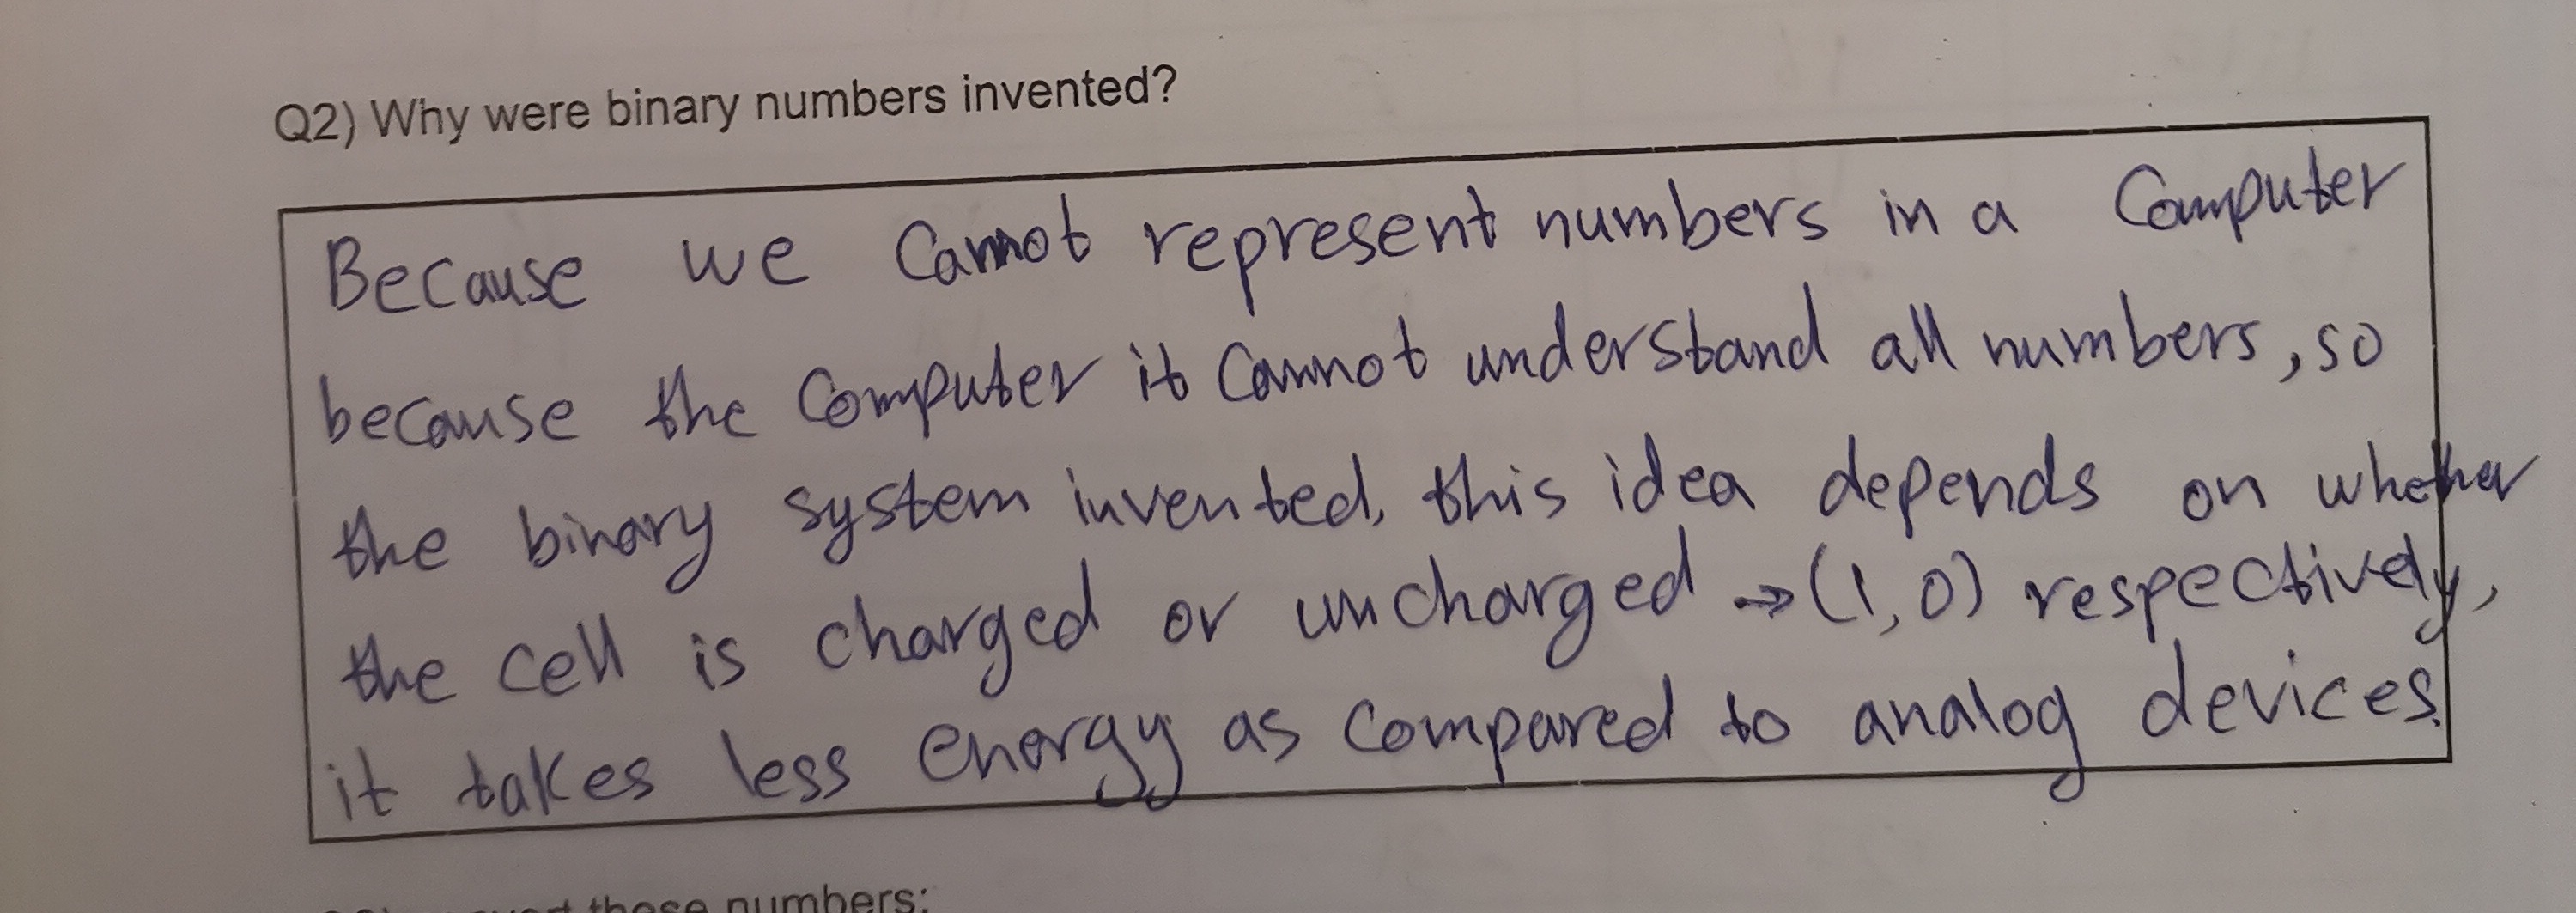 Q2) Why were binary numbers invented?
Because we cannot represent numbers in a computer
because the computer it cannot understand all numbers, so
the binary system invented, this idea depends on whether
the cell is charged or uncharged → (1,0) respectively,
it takes less energy as compared to analog devices.
these numbers: